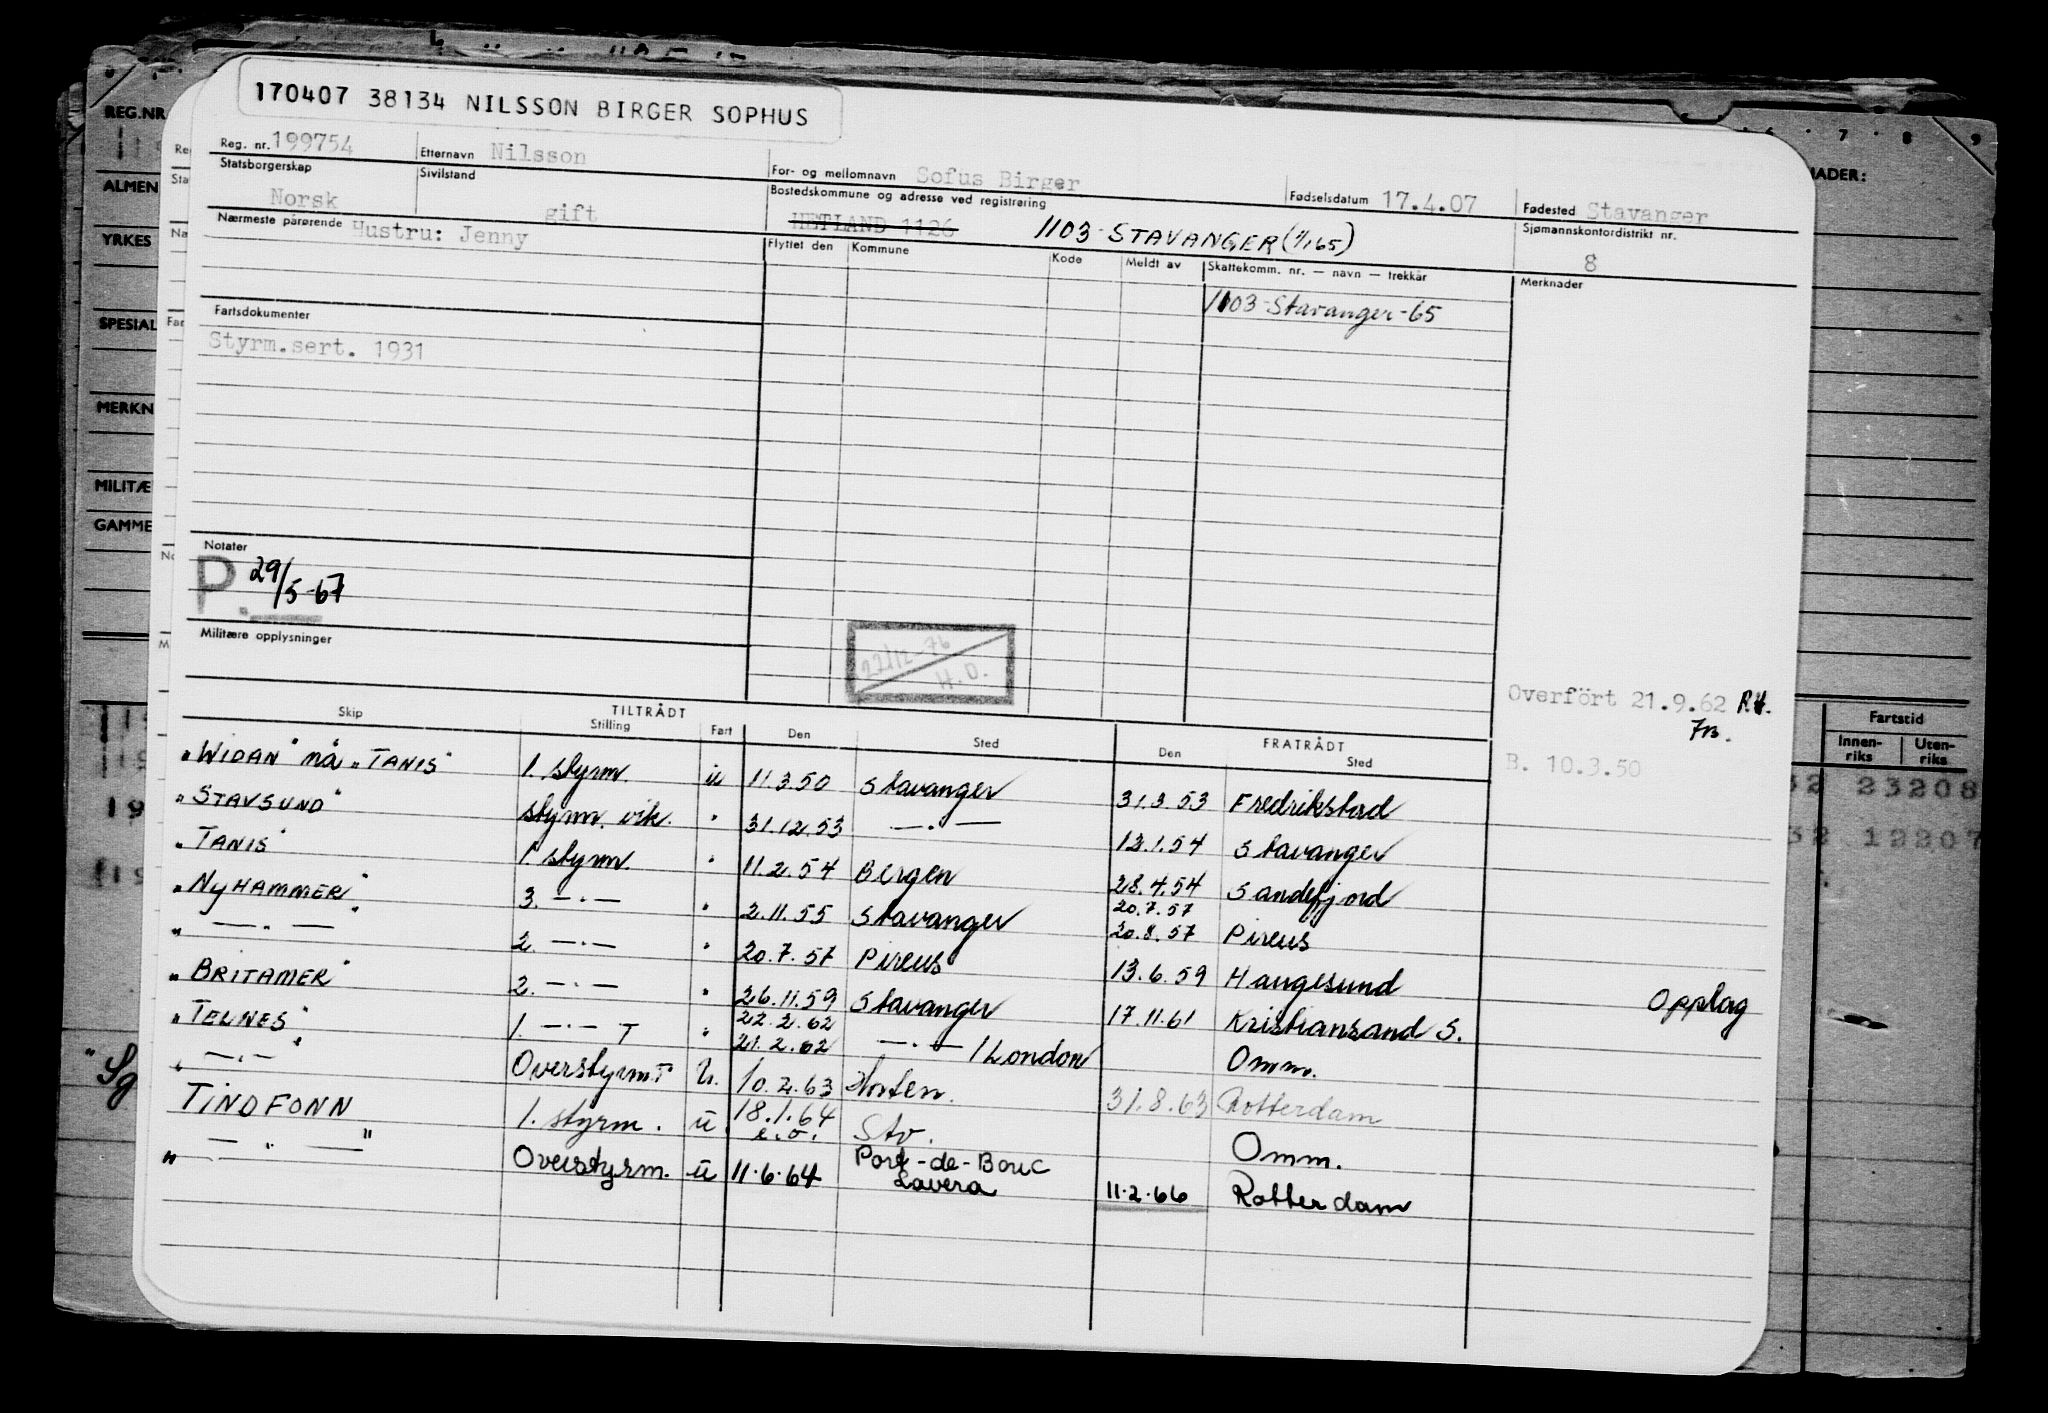 170407 38134 NILSSON BIRGER SOPHUS
Reg. nr. 199754 Etternavn Nilsson For- og mellomnavn Sofus Birger Fødselsdatum 17.4.07 Fødested Stavanger
Statsborgerskap Norsk Sivilstand gift Bostedskommune og adresse ved registrering HETLAND 1126 1103-STAVANGER (1/165) Sjømannskontordistrikt nr. 8
Nærmeste pårørende Hustru: Jenny Flyttet den Kommune Kode Meldt av Skattekomm. nr. — navn — trekkår Merknader
1103-Stavanger-65
Fartsdokumenter
Styrm.sert. 1931
Notater
P. 29/5-67
Militære opplysninger
22/12-76
H.O.
Overfört 21.9.62
B. 10.3.50
TILTRÅDT FRATRÅDT
Skip Stilling Fart Den Sted Den Sted
"WIDAN" nå "TANIS" 1. styrm. u 11.3.50 Stavanger 31.3.53 Fredrikstad
"STAVSUND" styrm. vik. " 31.12.53 — . — 12.1.54 Stavanger
"TANIS" 1 styrm. " 11.2.54 Bergen 28.4.54 Sandefjord
"NYHAMMER" 3. — . — " 2.11.55 Stavanger 20.7.57
20.8.57 Pireus
" — . — " 2. — . — " 20.7.57 Pireus 13.6.59 Haugesund Opplag
"BRITAMER" 2. — . — " 26.11.59 Stavanger 17.11.61 Kristiansand S.
"TELNES" 1. — . — T " 22.2.62
21.2.62 — . — / London Omm.
" — . — " Overstyrm T U. 10.2.63 Horten. 31.8.63 Rotterdam
TINDFONN 1. styrm. u. 18.1.64
e.o. Stv. Omm.
" — " — " Overstyrm. u 11.6.64 Port-de-Bouc
Lavera 11.2.66 Rotterdam
REG.NR.
ALMEN
YRKES
SPESIAL
MERKN
MILITÆ
GAMME
6 7 8 9
NADER:
Fartstid
Innen-
riks
Uten-
riks
23208
12207